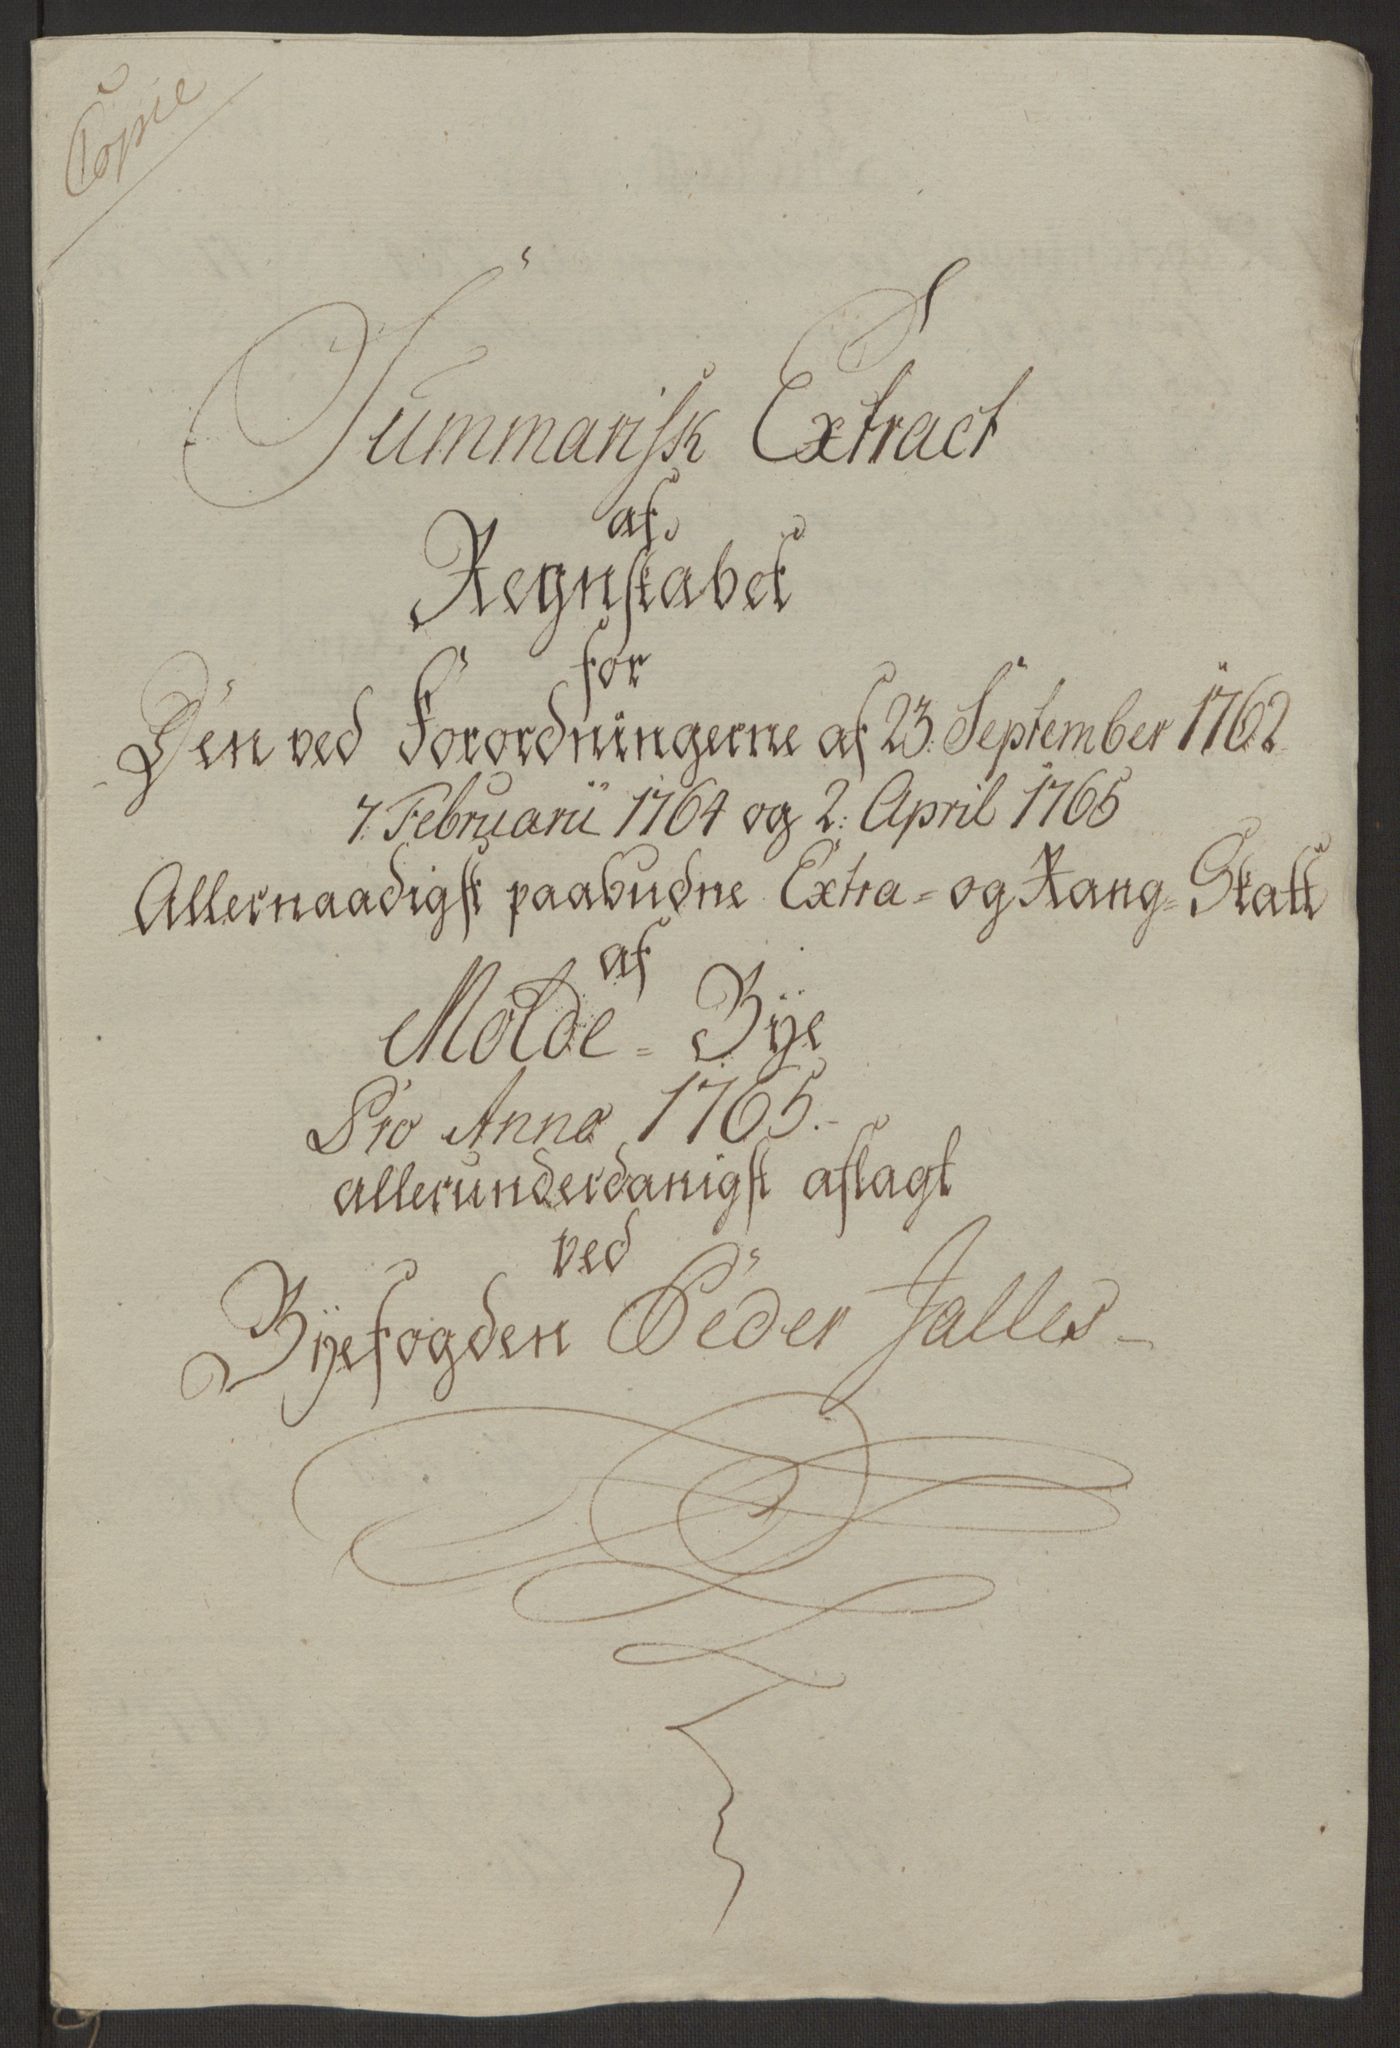 Copie
Summarisk Extract
af
Regnskabet
for
Den ved Forordningerne af 23: September 1762
7: Februarii 1764 og 2: April 1765
Allernaadigst paabudne Extra= og Rang=Skatt
af
Molde=Bÿe
Pro Anno 1765.-
allerunderdanigst aflagt
ved
Bÿefogden Peder Jalles-